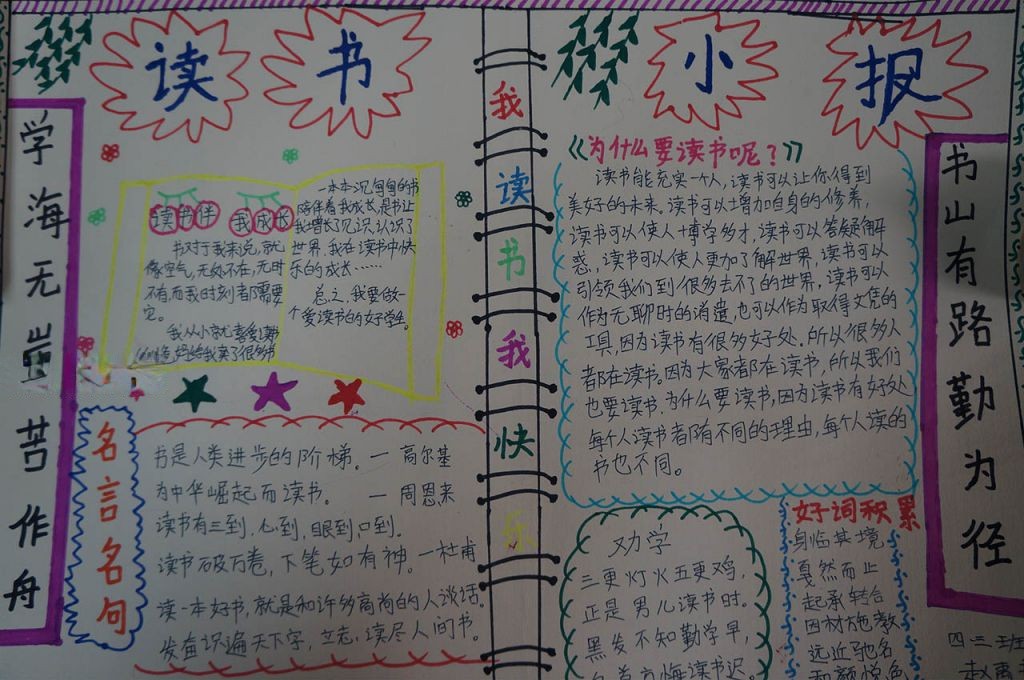 读书
小报
学海无崖苦作舟
读书伴 我成长
书对于我来说,就
像空气,无处不在,无时
不有,而我时刻者都需要
它。
我从小就喜爱读书
妈妈给我买了很多书
一本本沉甸甸的书
陪伴着我成长,是书让
我增长了见识,认识了
世界,我在读书中快
乐的成长……
总之,我要做一
个爱读书的好学生。
名言名句
书是人类进步的阶梯。一高尔基
为中华崛起而读书。 一周恩来
读书有三到,心到,眼到,口到.
读书破万卷,下笔如有神。一杜甫
读一本好书,就是和许多高尚的人谈话。
发奋识遍天下字,立志读尽人间书。
我读书我快乐
《为什么要读书呢?》
读书能充实一个人,读书可以让你得到
美好的未来。读书可以增加自身的修养,
读书可以使人博学多才,读书可以答疑解
惑,读书可以使人更加了解世界,读书可以
引领我们到很多去不了的世界,读书可以
作为无聊时的消遣,也可以作为取得文凭的
工具,因为读书有很多好处.所以很多人
都在读书。因为大家都在读书,所以我们
也要读书.为什么要读书,因为读书有好处
每个人读书都有不同的理由,每个人读的
书也不同。
劝学
三更灯火五更鸡,
正是男儿读书时。
黑发不知勤学早,
白首方悔读书迟。
好词积累
身临其境
戛然而止
起承转合
因材施教
远近驰名
和颜悦色
书山有路勤为径
四三班